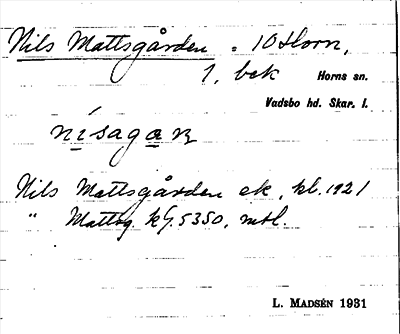 Nils Mattsgården = 10 Horn,
1, bek Horns sn.
Vadsbo hd. Skar. l.
nísagaʀ
Nils Mattsgården ek, kl. 1921
" Mattsg. kf. 5350, mtl.
L. MADSÉN 1931